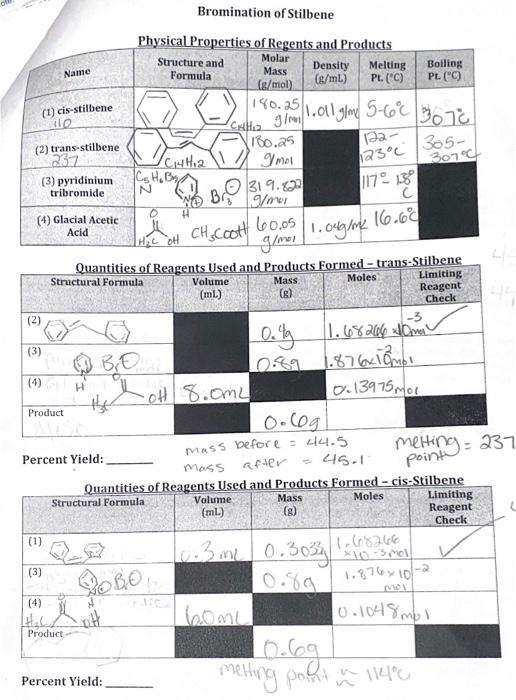 Bromination of Stilbene
Physical Properties of Regents and Products
Name Structure and Formula Molar Mass (g/mol) Density (g/mL) Melting Pt. (°C) Boiling Pt. (°C)
(1) cis-stilbene C14H12 180.25 g/mol 1.011 g/mL 5-6°C 307°C
110
(2) trans-stilbene C14H12 180.25 g/mol 122-123°C 305-307°C
237
(3) pyridinium tribromide C5H6Br3N N H Br3 ⊖ 319.822 g/mol 117°-138°C
(4) Glacial Acetic Acid O H3C OH CH3COOH 60.05 g/mol 1.04g/mL 16.6°C
Quantities of Reagents Used and Products Formed – trans-Stilbene
Structural Formula Volume (mL) Mass (g) Moles Limiting Reagent Check
(2) 0.4g 1.68266 x10-3 mol ✓
(3) Br3⊖ H 0.8g 1.876x10-2 mol
(4) O H3C OH 8.0mL 0.13975mol
Product 0.60g
Percent Yield: mass before = 44.5 melting point = 237
mass after = 45.1
Quantities of Reagents Used and Products Formed – cis-Stilbene
Structural Formula Volume (mL) Mass (g) Moles Limiting Reagent Check
(1) 0.3 mL 0.3033g 1.68266 x10-3 mol ✓
(3) Br3⊖ H 0.8g 1.876x10-2 mol
(4) H3C OH 6.0mL 0.1048mol
Product 0.6g
Percent Yield: melting point ≈ 114°C